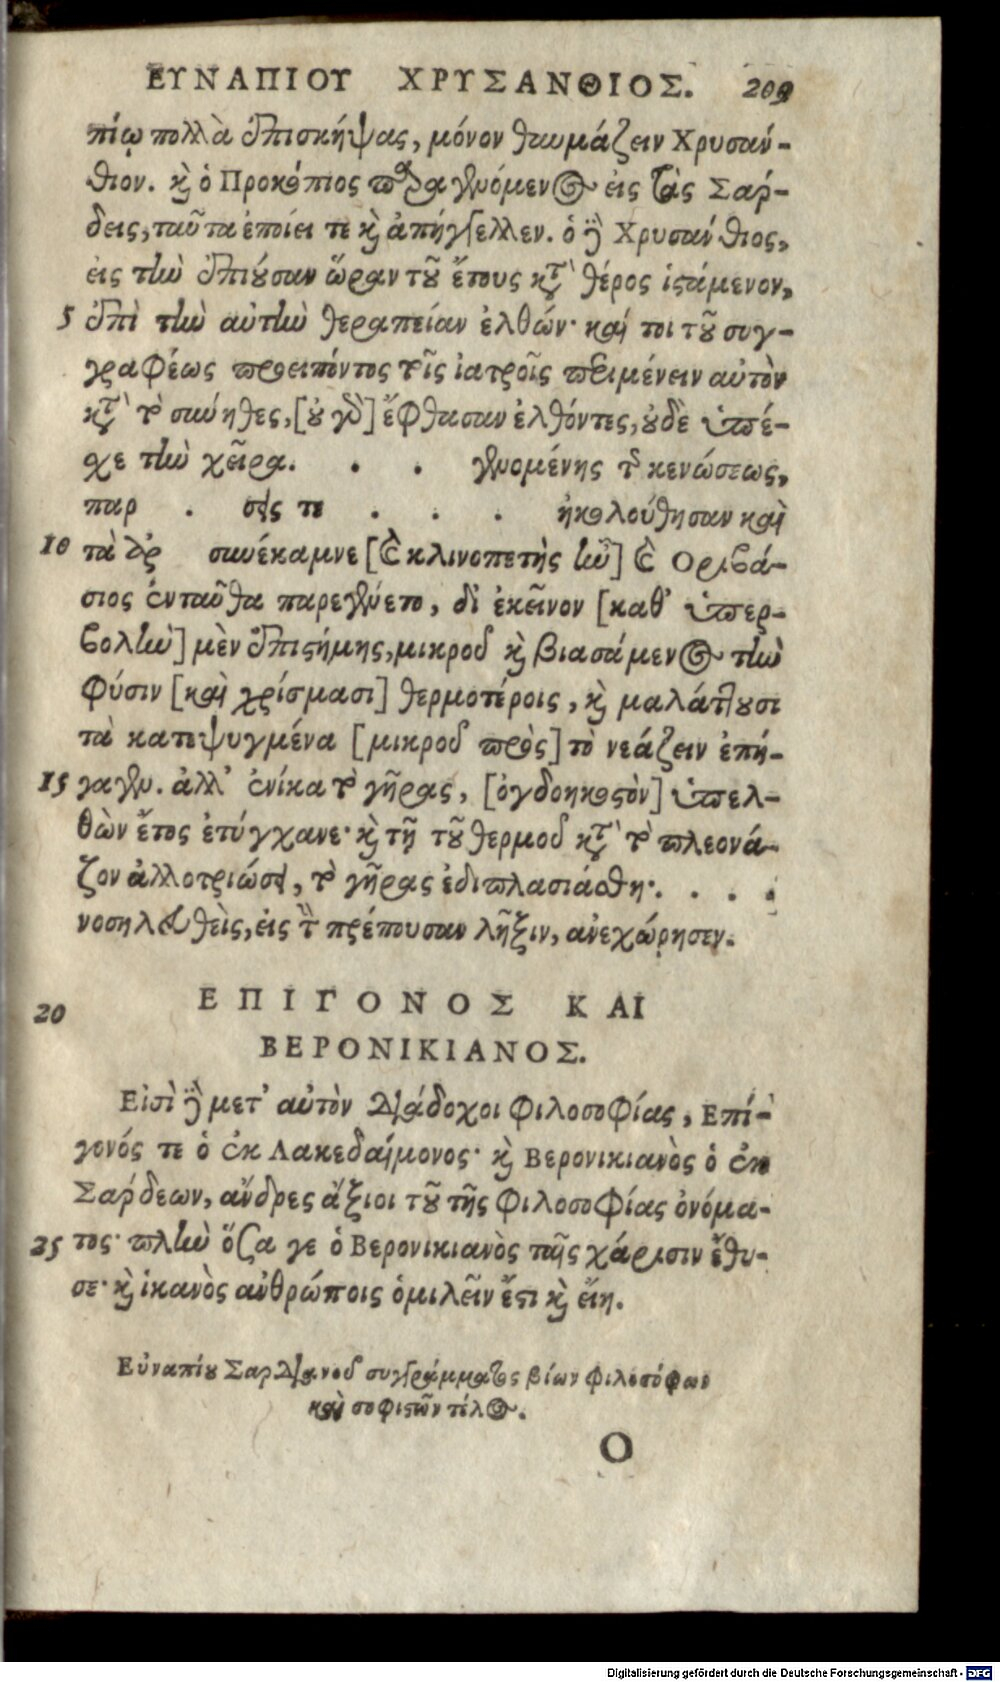 ΕΥΝΑΠΙΟΥ ΧΡΥΣΑΝΘΙΟΣ. 209
πίῳ πολλὰ ἐπισκήψας, μόνον θαυμάζειν Χρυσάν-
θιον. καὶ ὁ Προκόπιος παραγενόμενος εἰς τὰς Σάρ-
δεις, ταῦτα ἐποίει τε καὶ ἀπήγγελλεν. ὁ δὲ Χρυσάνθιος,
εἰς τὴν ἐπιοῦσαν ὥραν τοῦ ἔτους κατὰ θέρος ἱστάμενον,
5 ἐπὶ τὴν αὐτὴν θεραπείαν ἐλθών· καί τοι τοῦ συγ-
γραφέως προειπόντος τοῖς ἰατροῖς περιμένειν αὐτὸν
κατὰ τὸ σύνηθες, [οὐ γὰρ] ἔφθασαν ἐλθόντες, οὐδὲ ὑπέ-
χε τὴν χεῖρα. . . γενομένης τῆς κενώσεως,
παρ . σεις τε . . . ἠκολούθησαν καὶ
10 τὰ ἄρ συνέκαμνε [καὶ κλινοπετὴς ἦν] καὶ Ὀριβά-
σιος ἐνταῦθα παρεγένετο, δι' ἐκεῖνον [καθ' ὑπερ-
βολὴν] μὲν ἐπιστήμης, μικροῦ καὶ βιασάμενος τὴν
φύσιν [καὶ χρίσμασι] θερμοτέροις, καὶ μαλάττουσι
τὰ κατεψυγμένα [μικροῦ πρὸς] τὸ νεάζειν ἐπή-
15 γαγεν. ἀλλ' ἐνίκα τὸ γῆρας, [ὀγδοηκοστὸν] ὑπελ-
θὼν ἔτος ἐτύγχανε· καὶ τῇ τοῦ θερμοῦ κατὰ τὸ πλεονά-
ζον ἀλλοτριώσει, τὸ γῆρας ἐδιπλασιάσθη· . . . .
νοσηλευθεὶς, εἰς τὴν πρέπουσαν λῆξιν, ἀνεχώρησεν.
20 ΕΠΙΓΟΝΟΣ ΚΑΙ
ΒΕΡΟΝΙΚΙΑΝΟΣ.
Εἰσὶ δὲ μετ' αὐτὸν διάδοχοι φιλοσοφίας, Ἐπί-
γονός τε ὁ ἐκ Λακεδαίμονος· καὶ Βερονικιανὸς ὁ ἐκ
Σάρδεων, ἄνδρες ἄξιοι τοῦ τῆς φιλοσοφίας ὀνόμα-
25 τος· πλὴν ὅσα γε ὁ Βερονικιανὸς ταῖς χάρισιν ἔθυ-
σε· καὶ ἱκανὸς ἀνθρώποις ὁμιλεῖν ἔστι καὶ εἴη.
Εὐναπίου Σαρδιανοῦ συγγράμματος βίων φιλοσόφων
καὶ σοφιστῶν τέλος.
O
Digitalisierung gefördert durch die Deutsche Forschungsgemeinschaft - DFG